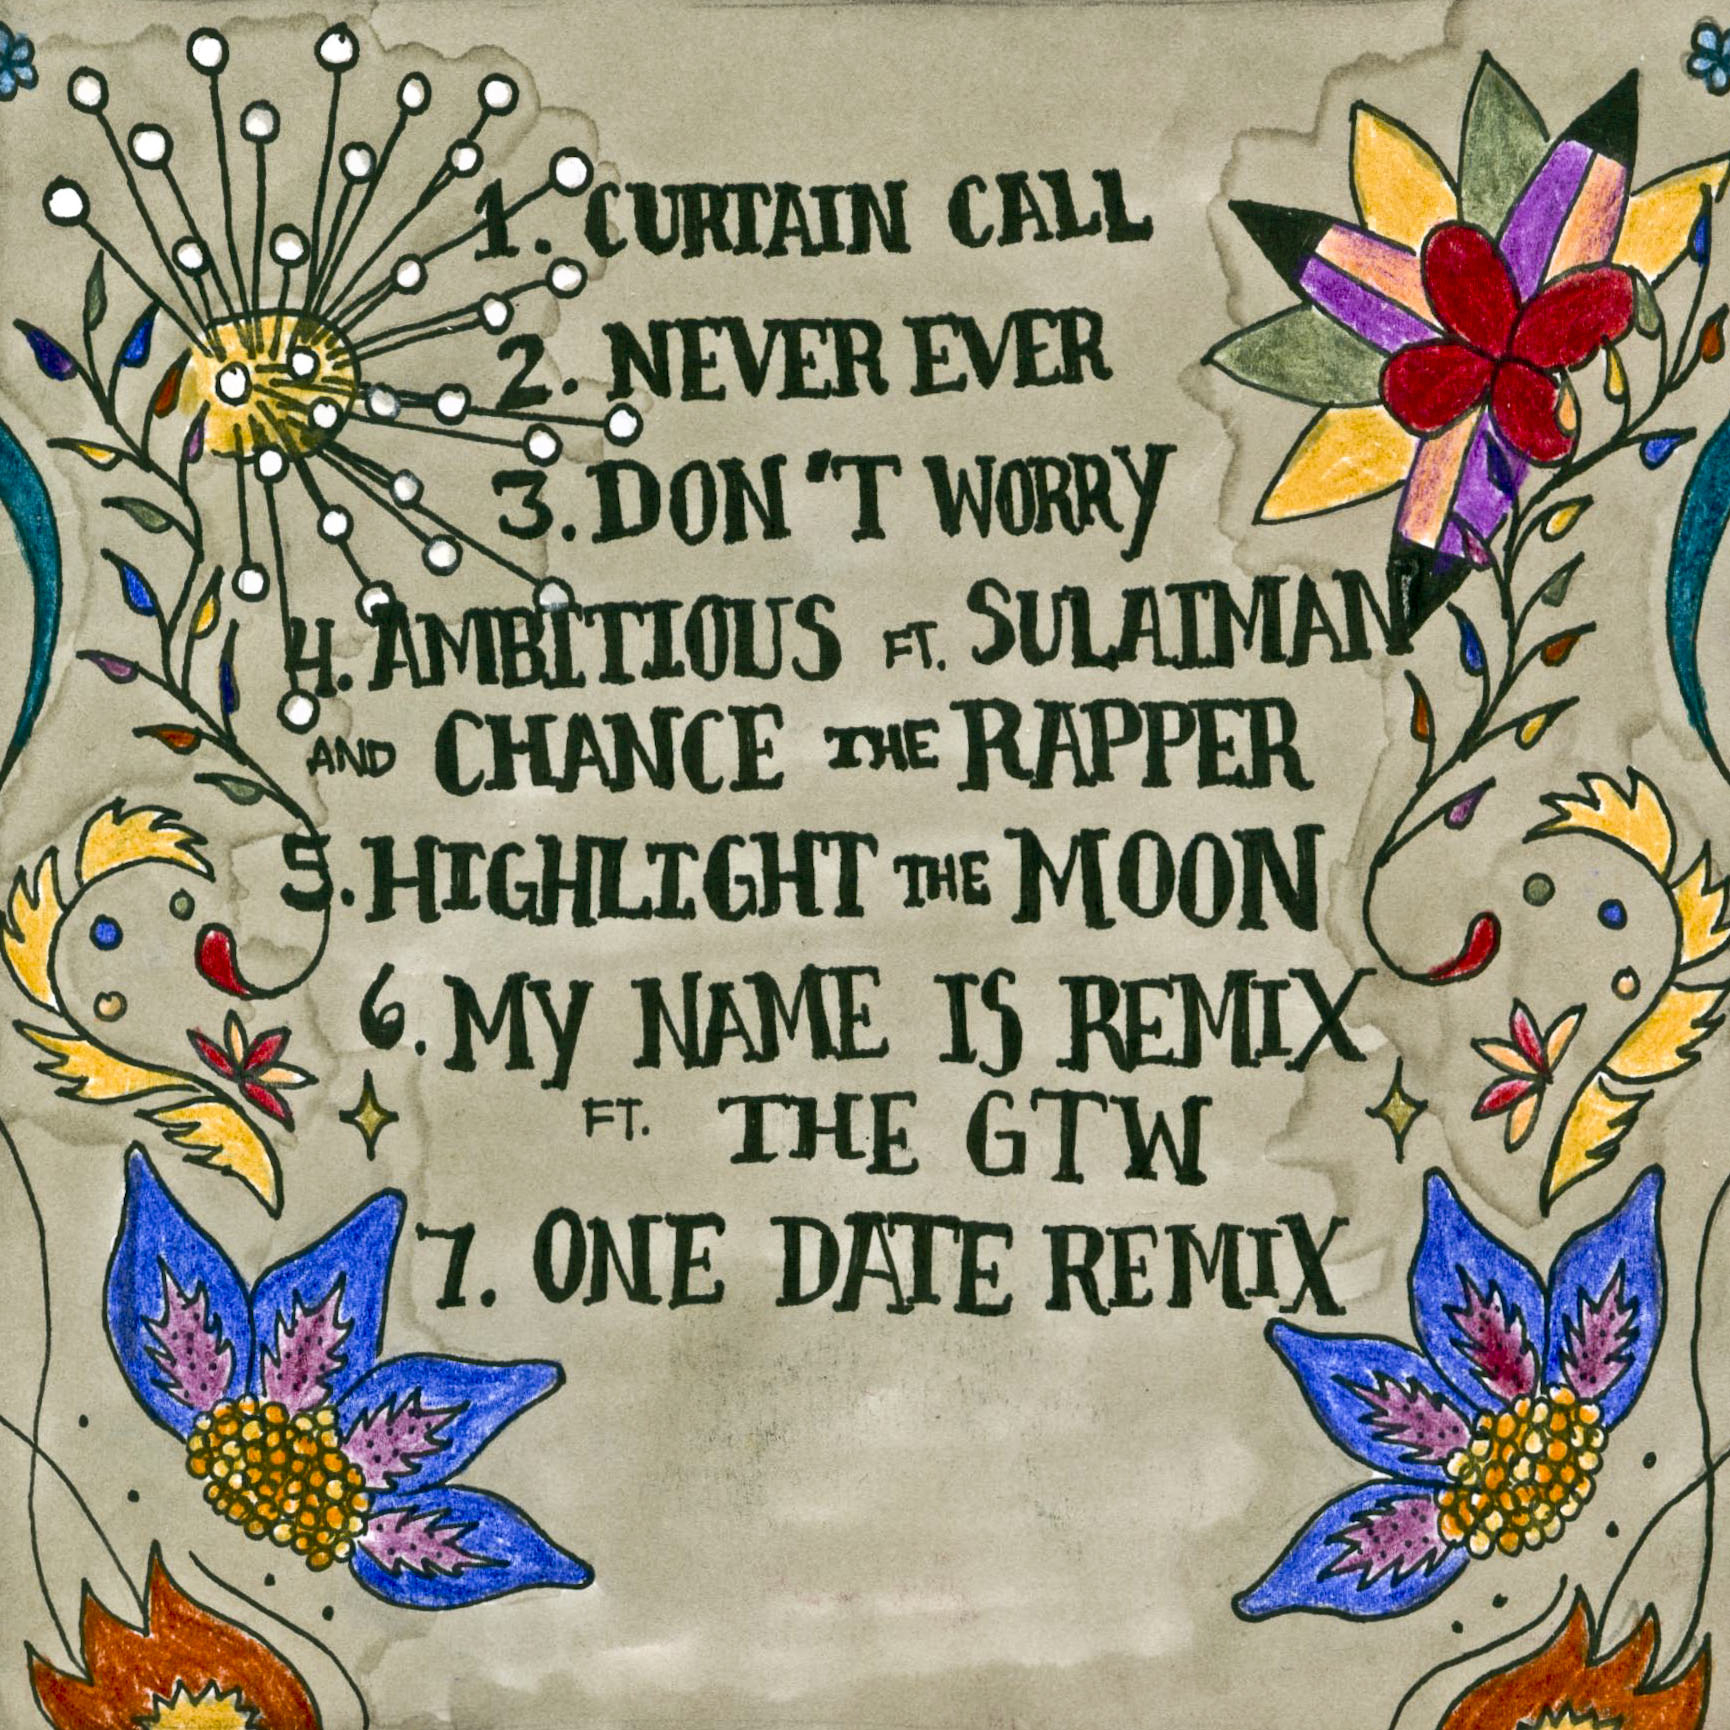 1. CURTAIN CALL
2. NEVER EVER
3. DON'T WORRY
4. AMBITIOUS FT. SULAIMAN
AND CHANCE THE RAPPER
5. HIGHLIGHT THE MOON
6. MY NAME IS REMIX
FT. THE GTW
7. ONE DATE REMIX